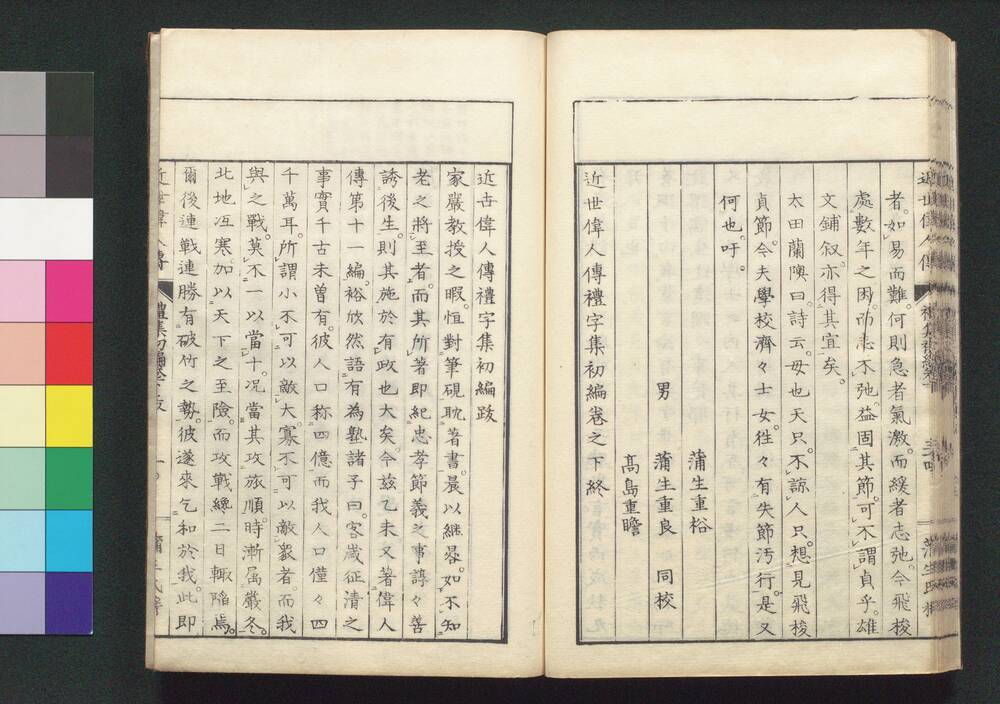 者。如易而難。何則急者氣激。而緩者志弛。今飛梭
處數年之困。而志不弛。益固其節。可不謂貞乎。雄
文鋪叙。亦得其宜矣。
太田蘭陬曰。詩云。母也天只。不諒人只。想見飛梭
貞節。今夫學校濟々士女。往々有失節汚行。是又
何也。吁。
蒲生重裕
男 蒲生重良 同校
髙島重瞻
近世偉人傳禮字集初編卷之下終
近世偉人傳禮字集初編跋
家嚴教授之暇。恒對筆硯耽著書。晨以繼晷。如不知
老之將至者。而其所著即紀忠孝節義之事。諄々善
誘後生。則其施於有政也大矣。今茲乙未又著偉人
傳第十一編。裕欣然語有為塾諸子曰。客歲征清之
事實千古未曽有。彼人口称四億而我人口僅々四
千萬耳。所謂小不可以敵大。寡不可以敵衆者。而我
與之戰。莫不一以當十。况當其攻旅順時漸屬嚴冬。
北地冱寒。加以天下之至險。而攻戰纔二日輙陥焉。
爾後連戰連勝有破竹之勢。彼遂來乞和於我。此即